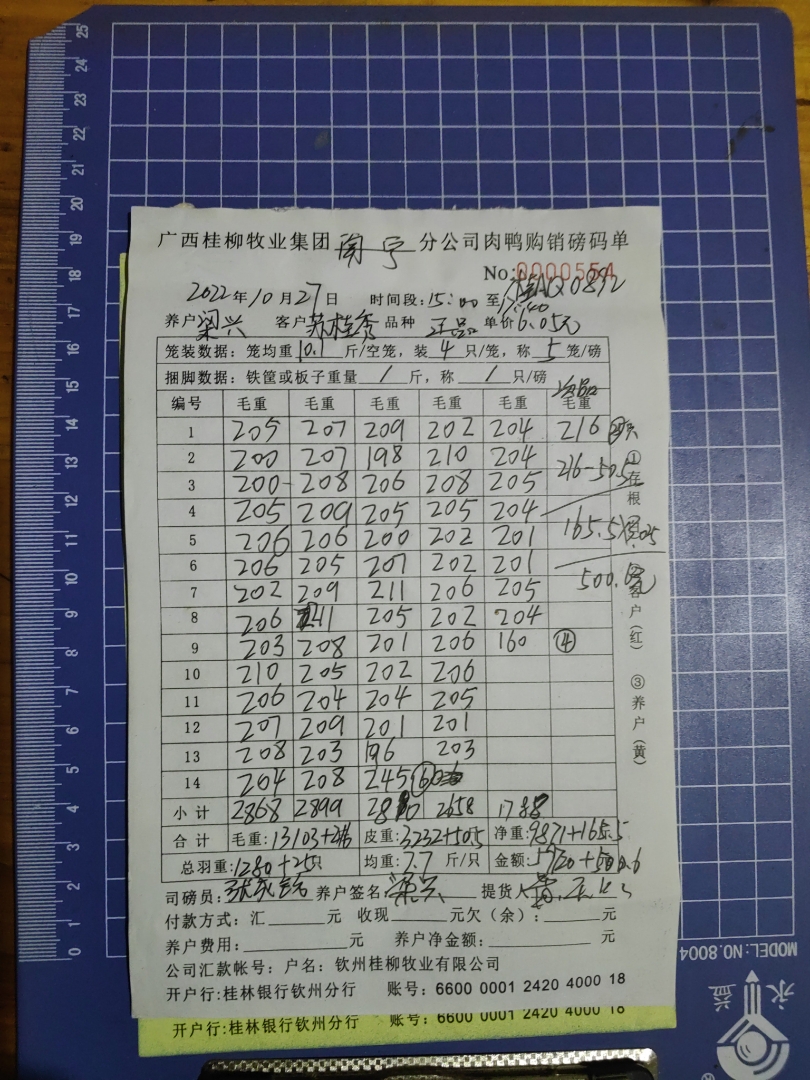 广西桂柳牧业集团南宁分公司肉鸭购销磅码单
No:0000554
桂AQ0892
2022年10月27日 时间段:15:00至
养户梁兴 客户苏桂秀 品种 正品 单价6.05元
笼装数据:笼均重10.1斤/空笼,装4只/笼,称5笼/磅
捆脚数据:铁筐或板子重量/斤,称/只/磅
编号 毛重 毛重 毛重 毛重 毛重 毛重
1 205 207 209 202 204 216
2 200 207 198 210 204 216-50.5
3 200 208 206 208 205
4 205 209 205 205 204
5 206 206 200 202 201 165.5
6 206 205 207 202 201
7 202 209 211 206 205
8 206 211 205 202 204
9 203 208 201 206 160 ④
10 210 205 202 206
11 206 204 204 205
12 207 209 201 201
13 208 203 196 203
14 204 208 245 ⑥
小计 2868 2899 2658
合计 毛重:13103+216 皮重:3232+50.5 净重:9871+165.5
总羽重:1280+25只 均重:7.7斤/只 金额:
司磅员: 养户签名:梁兴 提货人
付款方式:汇 元 收现 元欠(余): 元
养户费用: 元 养户净金额: 元
公司汇款帐号:户名:钦州桂柳牧业有限公司
开户行:桂林银行钦州分行 账号:6600 0001 2420 4000 18
开户行:桂林银行钦州分行 账号:6600 0001 2420 4000 18
①存根
②客户(红)
③养户(黄)
25
24
23
22
21
20
19
18
17
16
15
14
13
12
11
10
9
8
7
6
5
4
3
2
1
0
MODEL:NO.8004
永益